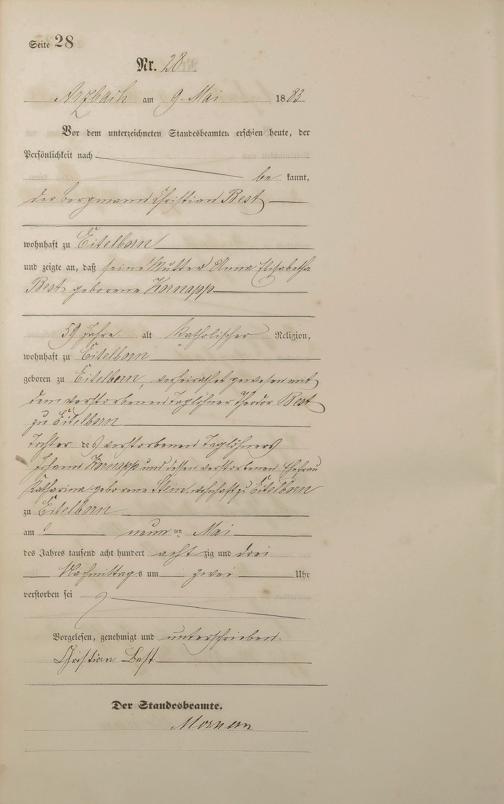 Seite 28
Nr. 28
Arzbach am 9. Mai 1883
Vor dem unterzeichneten Standesbeamten erschien heute, der
Persönlichkeit nach
be kannt,
der Bergmann Christian Best
wohnhaft zu Eitelborn
und zeigte an, daß seine Mutter Anna Elisabetha
Best geborene Knopp
59 Jahre alt katholischer Religion,
wohnhaft zu Eitelborn
geboren zu Eitelborn, verheirathet gewesen mit
dem verstorbenen Taglöhner Theodor Best
zu Eitelborn
Tochter des verstorbenen Taglöhners
Johann Knopp und dessen verstorbenen Ehefrau
Katharina geborene wohnhaft zu Eitelborn
zu Eitelborn
am neunten Mai
des Jahres tausend acht hundert acht zig und drei
Nachmittags um zwei Uhr
verstorben sei
Vorgelesen, genehmigt und unterschrieben
Christian Best
Der Standesbeamte.